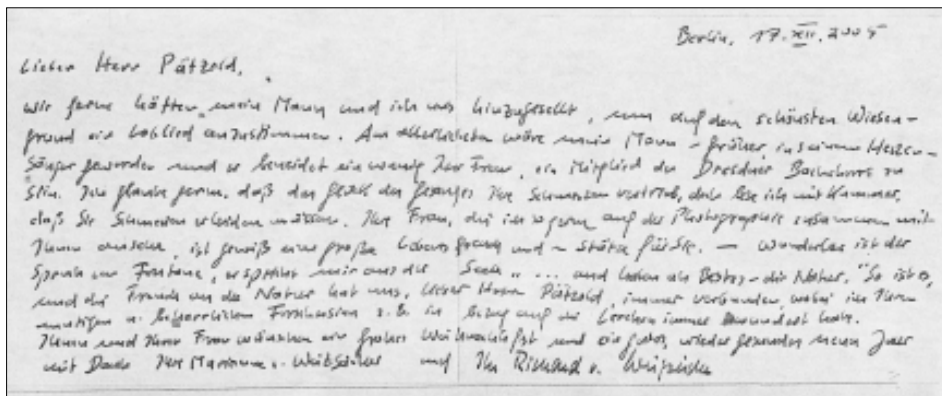 Berlin, 17. XII. 2005
Lieber Herr Pätzold,
wie gerne hätten mein Mann und ich uns hinzugesellt, um auf dem schönsten Wiesen-
grund ein Loblied anzustimmen. Am allerliebsten wäre mein Mann früher
Sänger geworden und er beneidet ein wenig Ihre Frau, ein Mitglied des Dresdner Bachchores zu
sein. Ich glaube gerne, daß das Ihre Schmerzen vertrieb, doch lese ich mit Kummer,
daß Sie Schmerzen erleiden müssen. Ihre Frau, die ich so gern auf der Photographie zusammen mit
Ihnen ist gewiß eine große und Stärke für Sie. – Wunderbar ist der
Spruch von Fontane, er spricht mir aus der Seele „... und haben als Bestes – die Natur." So ist es,
und die Freude an der Natur hat uns, lieber Herr Pätzold, immer verbunden, wobei ich Ihren
mutigen u. z. B. in bezug auf die Lerchen immer bewundert habe.
Ihnen und Ihrer Frau wünschen wir ein frohes Weihnachtsfest und ein gutes, neues Jahr
mit Dank Ihre Marianne v. Weizsäcker und Ihr Richard v. Weizsäcker